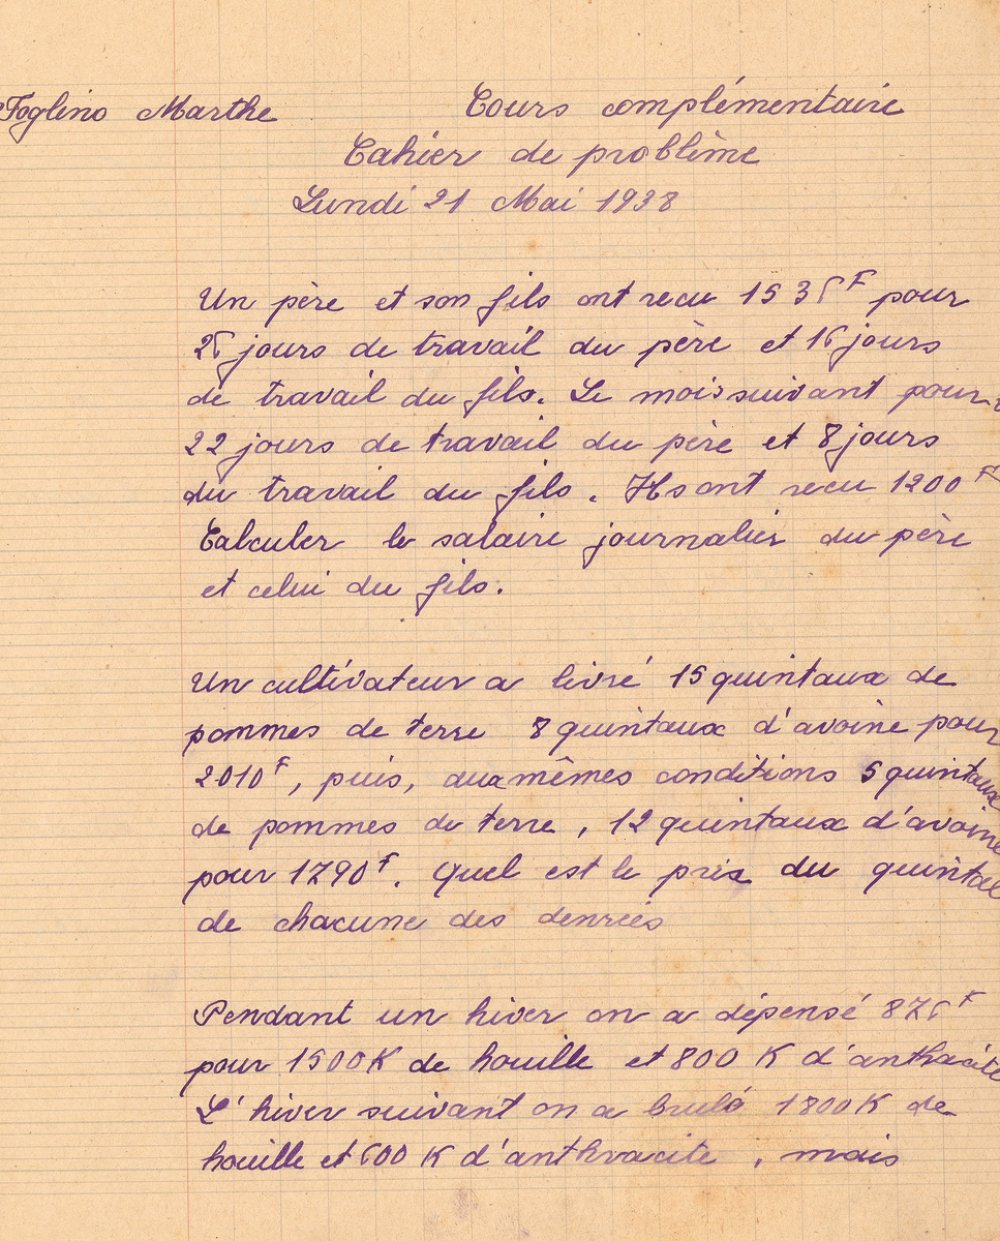 Foglino Marthe Cours complémentaire
Cahier de problème
Lundi 21 Mai 1928
Un père et son fils ont recu 1536F pour
26 jours de travail du père et 16 jours
de travail du fils. Le mois suivant pour
22 jours de travail du père et 8 jours
du travail du fils. Ils ont recu 1200F
Calculer le salaire journalier du père
et celui du fils.
Un cultivateur a livré 15 quintaux de
pommes de terre 8 quintaux d'avoine pour
2010F, puis, aux mêmes conditions 5 quintaux
de pommes de terre, 12 quintaux d'avoine
pour 1790F. Quel est le prix du quintal
de chacune des denrées
Pendant un hiver on a dépensé 876F
pour 1500K de houille et 800 K d'anthracite
L'hiver suivant on a brulé 1800K de
houille et 600 K d'anthracite, mais